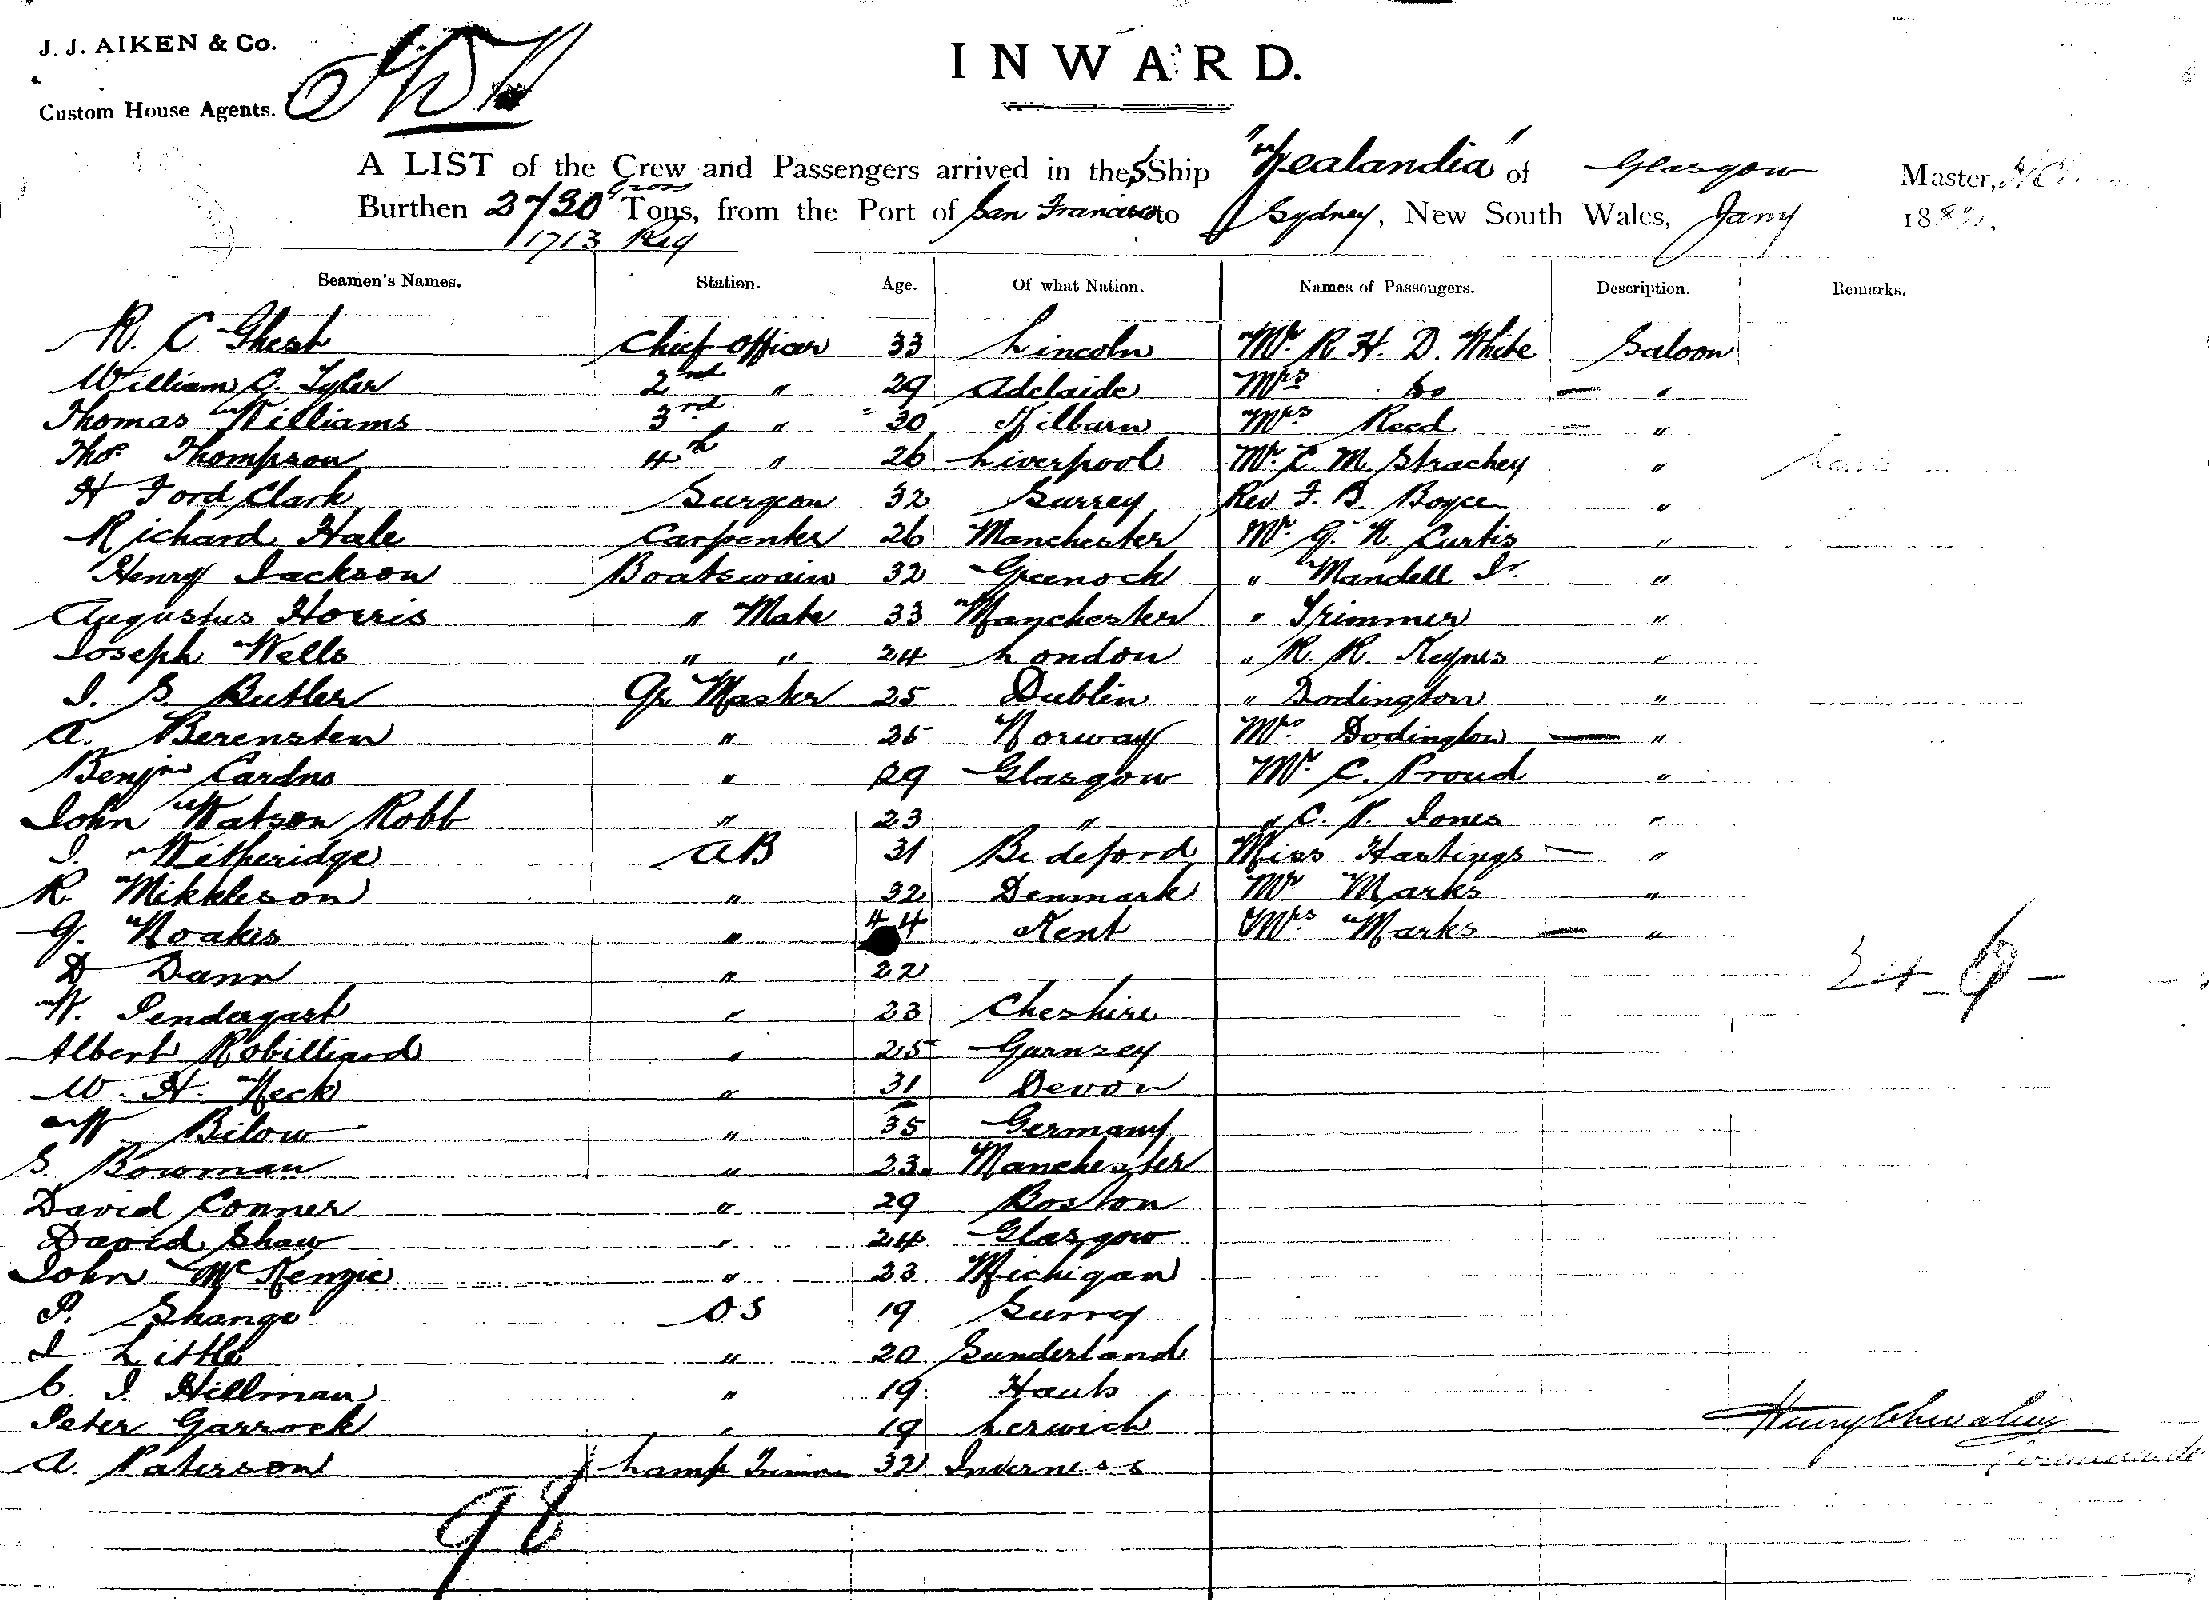 J. J. AIKEN & Co.
Custom House Agents.
INWARD.
A LIST of the Crew and Passengers arrived in the S Ship "Zealandia" of Glasgow Master, H
Burthen 2730 Gross Tons, from the Port of San Francisco to Sydney, New South Wales, Jany 188
1713 Reg
Seamen's Names. Station. Age. Of what Nation. Names of Passengers. Description. Remarks.
R. C Ghest Chief Officer 33 Lincoln Mr. R. H. D. White Saloon
William C. Tyler 2nd " 29 Adelaide Mrs Do — "
Thomas Williams 3rd " 30 Kilburn Mrs Reed — "
Thos Thompson 4th " 26 Liverpool Mr. C. M. Strachey "
H Ford Clark Surgeon 32 Surrey Rev F. B. Boyce "
Richard Hale Carpenter 26 Manchester Mr. G. N. Curtis "
Henry Jackson Boatswain 32 Greenock " Mandell Jr "
Augustus Horris " Mate 33 Manchester " Trimmer "
Joseph Wells " " 24 London " R. R. Keynes "
J. S. Butler Qr Master 25 Dublin " Dodington "
A. Berensten " 25 Norway Mrs Dodington — "
Benjn Cardno " 29 Glasgow Mr. C. Proud "
John Watson Robb " 23 " " C. N. Jones "
J. Witheridge AB 31 Bideford Miss Hastings — "
R. Mikkleson " 32 Denmark Mr Marks "
G. Noakes " 44 Kent Mrs Marks — "
D Dann " 22
W. Pendergast " 23 Cheshire
Albert Robilliard " 25 Gurnsey
W. H. Heck " 31 Devon
W Bilow " 35 Germany
S. Bowman " 23 Manchester
David Conner " 29 Boston
David Shaw " 24 Glasgow
John McKenzie " 23 Michigan
P. Shange OS 19 Surrey
J Little " 20 Sunderland
C. J. Hillman " 19 Hants
Peter Garrock " 19 Lerwick
A. Paterson Lamp Trimmer 32 Inverness
98